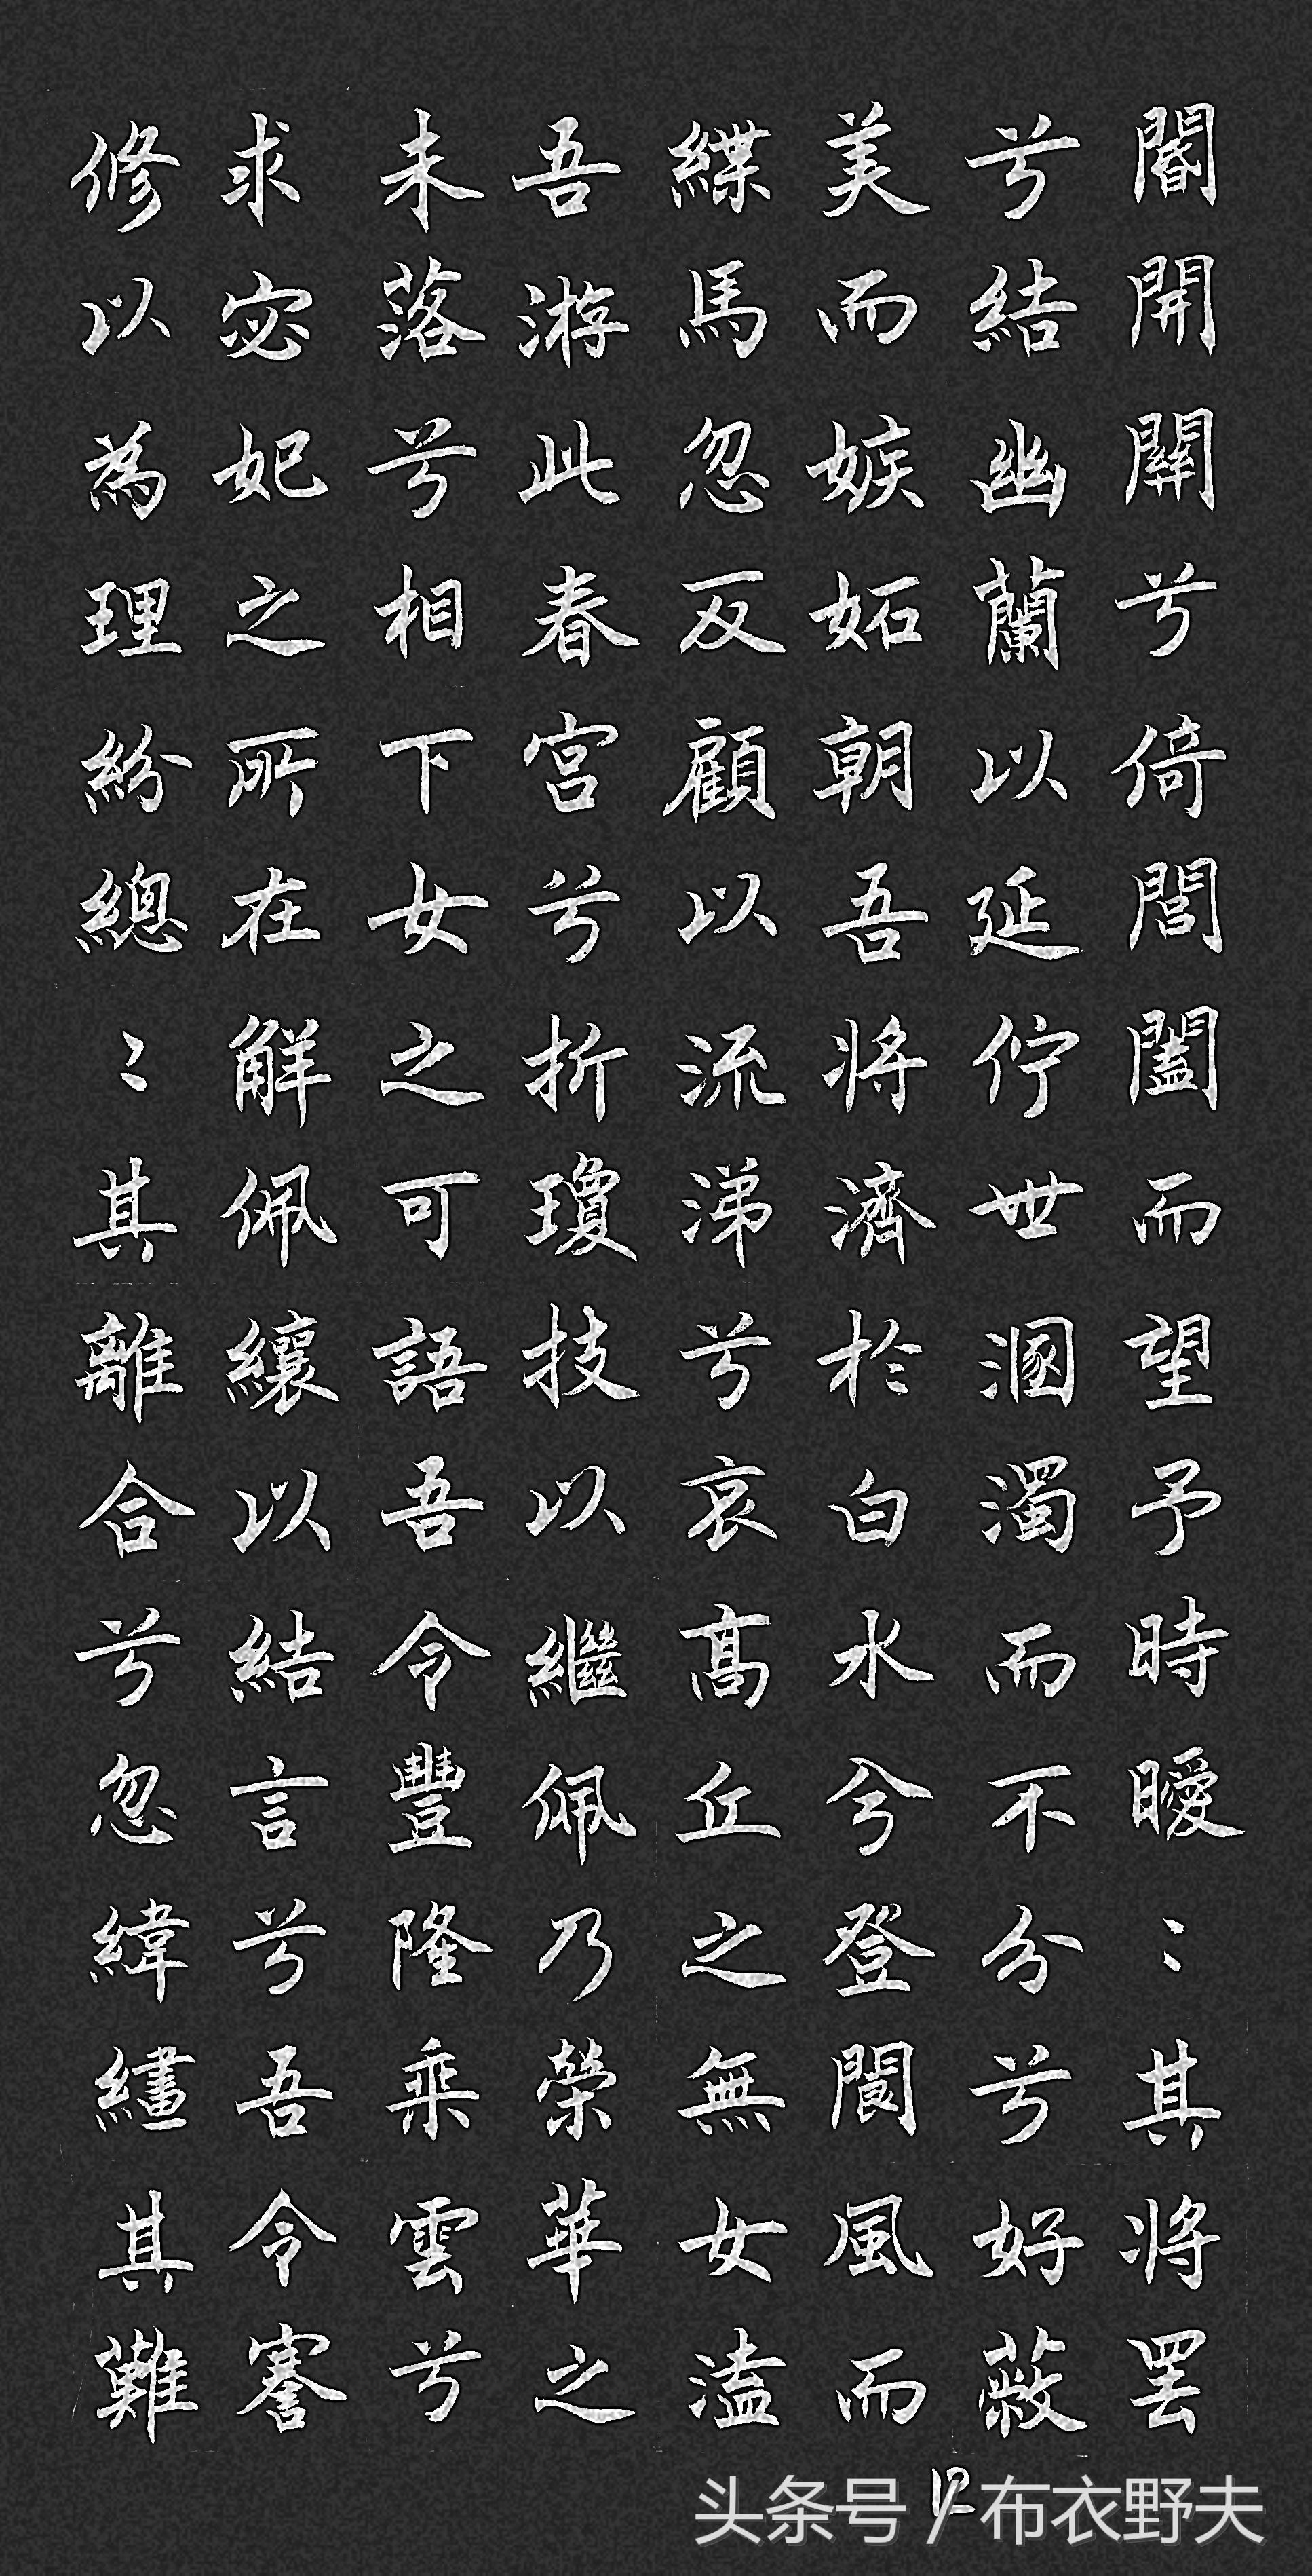 閽開關兮倚閶闔而望予時曖〻其將罷
兮結幽蘭以延佇世溷濁而不分兮好蔽
美而嫉妬朝吾將濟於白水兮登閬風而
緤馬忽反顧以流涕兮哀髙丘之無女溘
吾游此春宮兮折瓊技以繼佩乃榮華之
未落兮相下女之可語吾令豐隆乘雲兮
求宓妃之所在解佩纕以結言兮吾令謇
修以為理紛總〻其離合兮忽緯繣其難
头条号 / 布衣野夫